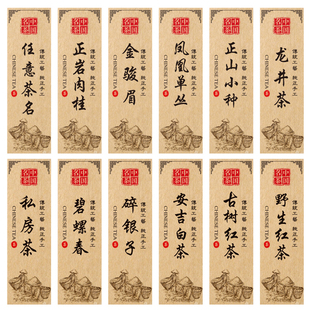 中国
名茶
任意茶名
傳統工藝 純正手工
CHINESE TEA
中国
名茶
正岩肉桂
傳統工藝 純正手工
CHINESE TEA
中国
名茶
金骏眉
傳統工藝 純正手工
CHINESE TEA
中国
名茶
凤凰单丛
傳統工藝 純正手工
CHINESE TEA
中国
名茶
正山小种
傳統工藝 純正手工
CHINESE TEA
中国
名茶
龙井茶
傳統工藝 純正手工
CHINESE TEA
中国
名茶
私房茶
傳統工藝 純正手工
CHINESE TEA
中国
名茶
碧螺春
傳統工藝 純正手工
CHINESE TEA
中国
名茶
碎银子
傳統工藝 純正手工
CHINESE TEA
中国
名茶
安吉白茶
傳統工藝 純正手工
CHINESE TEA
中国
名茶
古树红茶
傳統工藝 純正手工
CHINESE TEA
中国
名茶
野生红茶
傳統工藝 純正手工
CHINESE TEA